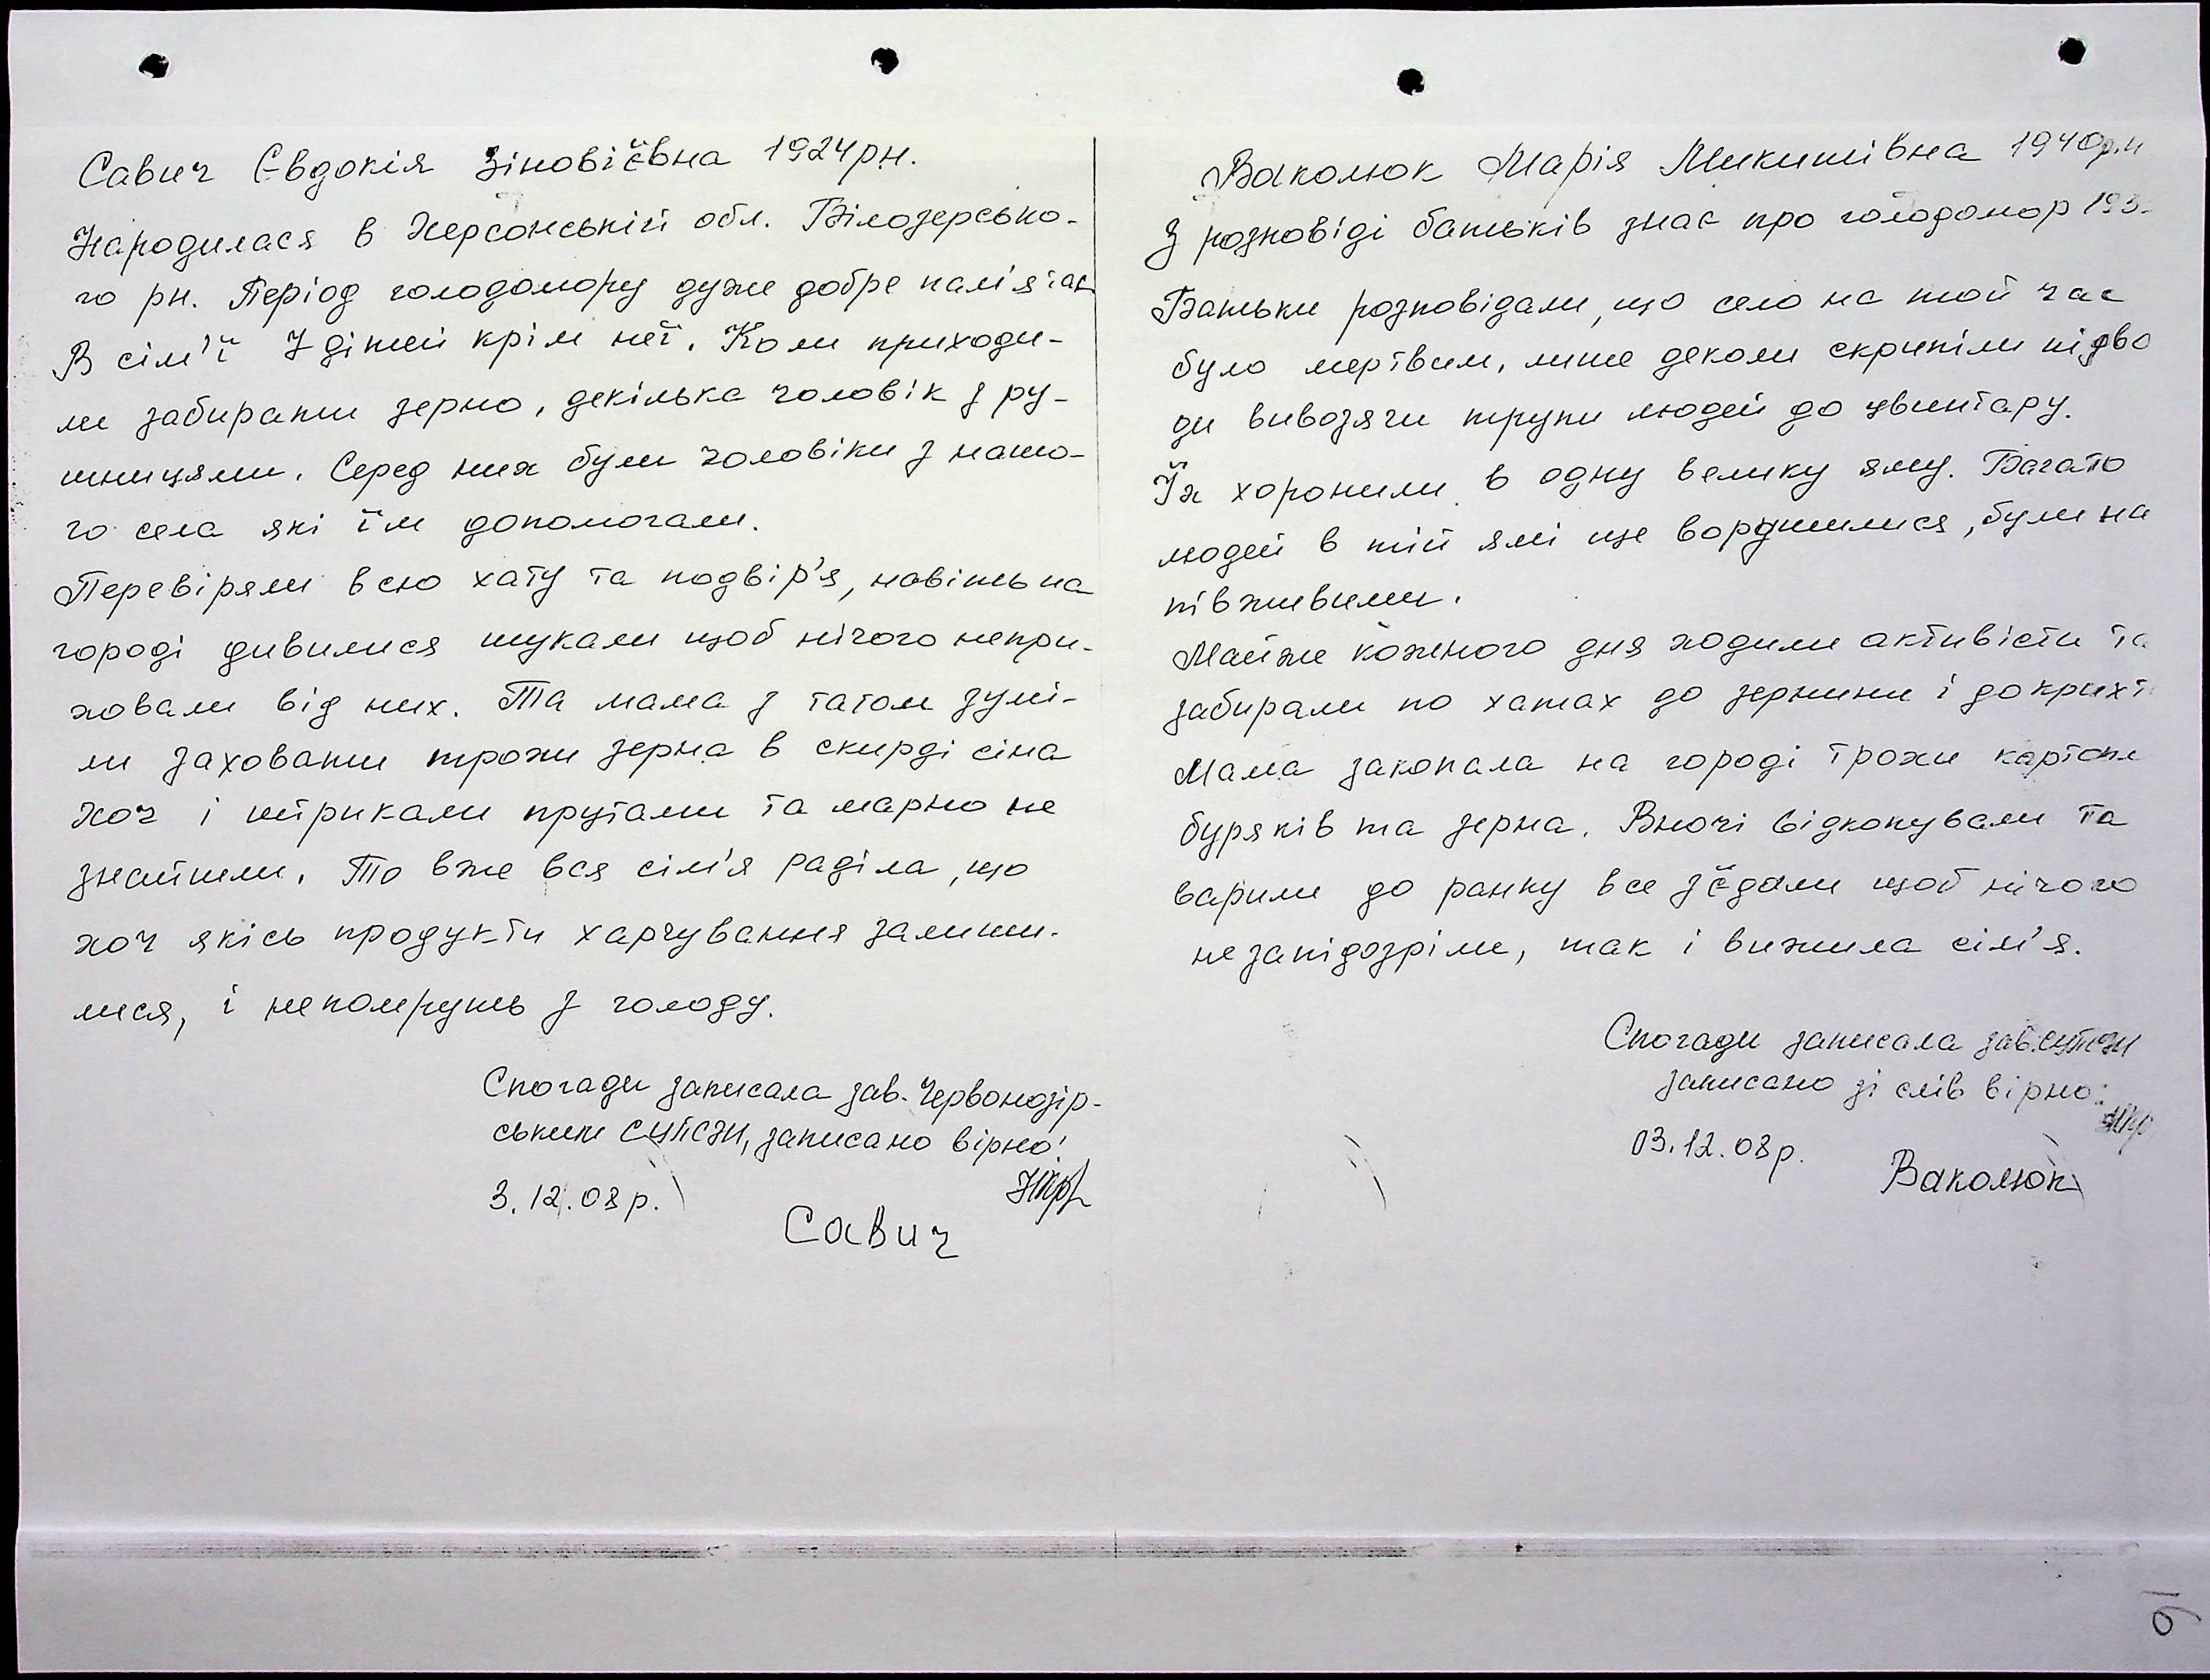 Савич Євдокія Зіновіївна 1924рн.
Народилася в Херсонській обл. Білозерсько-
го рн. Період голодомору дуже добре пам'ятає
В сім'ї 7 дітей крім неї. Коли приходи-
ли забирати зерно, декілька чоловік з ру-
шницями. Серед них були чоловіки з нашо-
го села які їм допомогали.
Перевіряли всю хату та подвір'я, навіть на
городі дивилися шукали щоб нічого непри-
ховали від них. Та мама з татом зумі-
ли заховати трохи зерна в скирді сіна
хоч і штрикали прутами та марно не
знайшли. То вже вся сім'я раділа, що
хоч якісь продукти харчування залиши-
лися, і непомруть з голоду.
Спогади записала зав. Червонозір-
ським СЦПСЗН, записано вірно!
3.12.08р.
Савич
Ваколюк Марія Микитівна 1940р.н
З розповіді батьків знає про голодомор 193
Батьки розповідали, що село на той час
було мертвим, лише деколи скрипіли підво
ди вивозячи трупи людей до цвинтару.
Їх хоронили в одну велику яму. Багато
людей в тій ямі ще ворушилися, були на
півживими.
Майже кожного дня ходили активісти та
забирали по хатах до зернини і до крихт
Мама закопала на городі трохи картопл
буряків та зерна. Вночі відкопували та
варили до ранку все зїдали щоб нічого
незапідозріли, так і вижила сім'я.
Спогади записала зав.
записано зі слів вірно:
03.12.08р.
Ваколюк
91